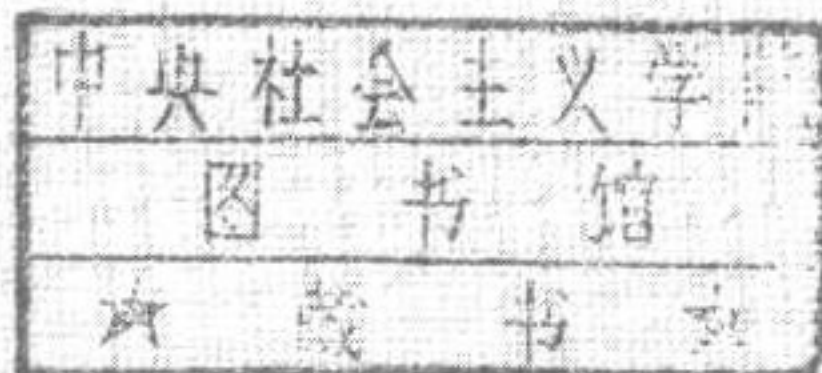 中央社会主义学
图书馆
★藏书